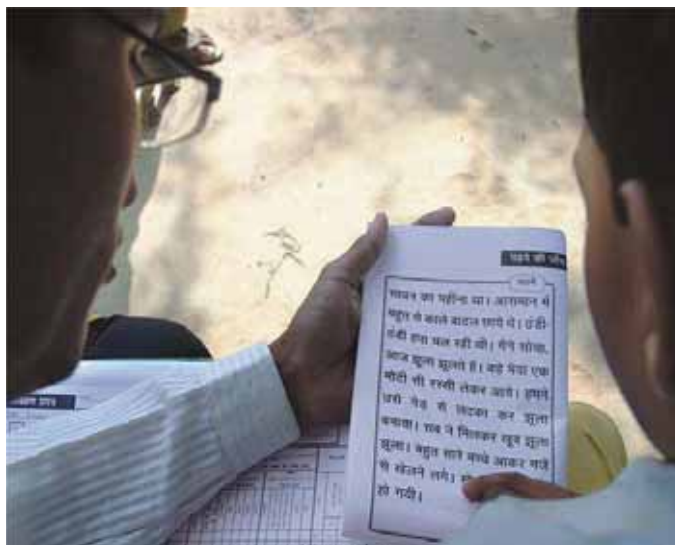 पढ़ने की जाँच
कहानी
सावन का महीना था। आसमान में
बहुत से काले बादल छाये थे। ठंडी-
ठंडी हवा चल रही थी। मैंने सोचा,
आज झूला झूलते हैं। बड़े भैया एक
मोटी सी रस्सी लेकर आये। हमने
उसे पेड़ से लटका कर झूला
बनाया। सब ने मिलकर खूब झूला
झूला। बहुत सारे बच्चे आकर मजे
से खेलने लगे।
हो गयी।